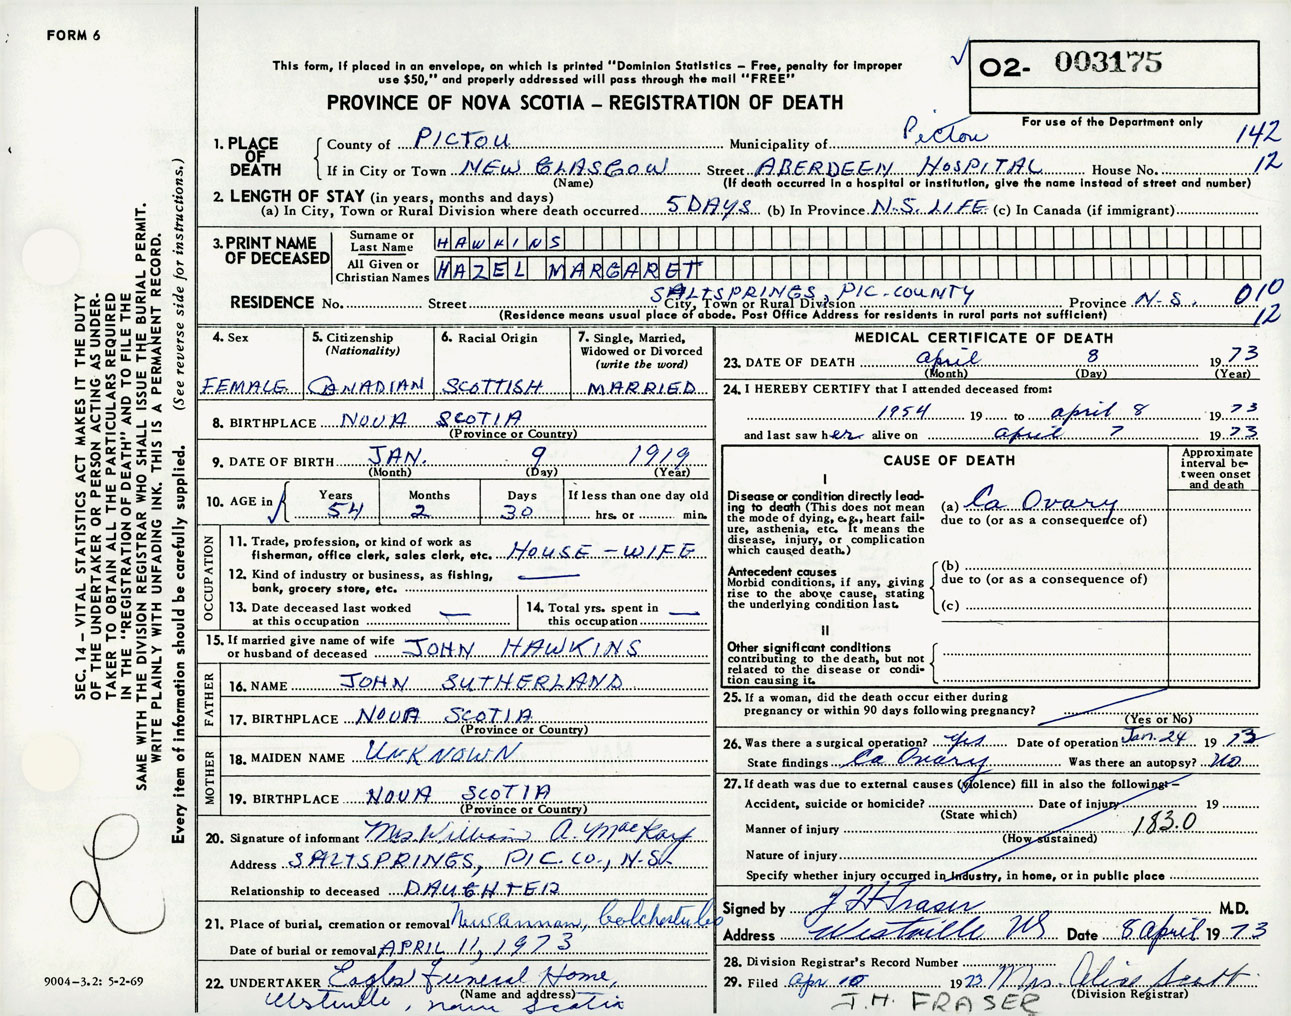 FORM 6
This form, if placed in an envelope, on which is printed "Dominion Statistics – Free, penalty for improper
use $50," and properly addressed will pass through the mail "FREE"
PROVINCE OF NOVA SCOTIA – REGISTRATION OF DEATH
O2- 003175
For use of the Department only
142
12
1. PLACE OF DEATH
County of PICTOU Municipality of Pictou
If in City or Town NEW GLASGOW Street ABERDEEN HOSPITAL House No.
(Name) (If death occurred in a hospital or institution, give the name instead of street and number)
2. LENGTH OF STAY (in years, months and days)
(a) In City, Town or Rural Division where death occurred 5 DAYS (b) In Province N.S. LIFE (c) In Canada (if immigrant)
3. PRINT NAME OF DECEASED
Surname or Last Name HAWKINS
All Given or Christian Names HAZEL MARGARET
SALTSPRINGS, PIC-COUNTY
RESIDENCE No. Street City, Town or Rural Division Province N-S. 010
(Residence means usual place of abode. Post Office Address for residents in rural parts not sufficient) 12
4. Sex
FEMALE
5. Citizenship
(Nationality)
CANADIAN
6. Racial Origin
SCOTTISH
7. Single, Married,
Widowed or Divorced
(write the word)
MARRIED
8. BIRTHPLACE NOVA SCOTIA
(Province or Country)
9. DATE OF BIRTH JAN. 9 1919
(Month) (Day) (Year)
10. AGE in
Years Months Days If less than one day old
54 2 30 hrs. or min.
OCCUPATION
11. Trade, profession, or kind of work as
fisherman, office clerk, sales clerk, etc. HOUSE-WIFE
12. Kind of industry or business, as fishing,
bank, grocery store, etc. —
13. Date deceased last worked
at this occupation —
14. Total yrs. spent in
this occupation —
15. If married give name of wife
or husband of deceased JOHN HAWKINS
FATHER
16. NAME JOHN SUTHERLAND
17. BIRTHPLACE NOVA SCOTIA
(Province or Country)
MOTHER
18. MAIDEN NAME UNKNOWN
19. BIRTHPLACE NOVA SCOTIA
(Province or Country)
20. Signature of informant Mrs. William A. MacKay
Address SALTSPRINGS, PIC. CO., N-S.
Relationship to deceased DAUGHTER
21. Place of burial, cremation or removal Newannan, Colchester Co
Date of burial or removal APRIL 11, 1973
22. UNDERTAKER Eagles Funeral Home,
(Name and address)
Westville, Nova Scotia
MEDICAL CERTIFICATE OF DEATH
23. DATE OF DEATH April 8 1973
(Month) (Day) (Year)
24. I HEREBY CERTIFY that I attended deceased from:
1954 19 to april 8 1973
and last saw her alive on april 7 1973
CAUSE OF DEATH
Approximate
interval be-
tween onset
and death
I
Disease or condition directly lead-
ing to death (This does not mean
the mode of dying, e.g., heart fail-
ure, asthenia, etc. It means the
disease, injury, or complication
which caused death.)
(a) Ca Ovary
due to (or as a consequence of)
Antecedent causes
Morbid conditions, if any, giving
rise to the above cause, stating
the underlying condition last.
(b)
due to (or as a consequence of)
(c)
II
Other significant conditions
contributing to the death, but not
related to the disease or condi-
tion causing it.
25. If a woman, did the death occur either during
pregnancy or within 90 days following pregnancy?
(Yes or No)
26. Was there a surgical operation? yes Date of operation Jan. 24 1973
State findings Ca Ovary Was there an autopsy? no
27. If death was due to external causes (violence) fill in also the following:—
Accident, suicide or homicide? Date of injury 19
(State which)
Manner of injury 183.0
(How sustained)
Nature of injury
Specify whether injury occurred in industry, in home, or in public place
Signed by J H Fraser M.D.
Address Westville NS Date 8 april 1973
28. Division Registrar's Record Number
29. Filed Apr 10 1973 Mrs. Alice Scott
(Division Registrar)
J.H. FRASER
SEC. 14 – VITAL STATISTICS ACT MAKES IT THE DUTY
OF THE UNDERTAKER OR PERSON ACTING AS UNDER-
TAKER TO OBTAIN ALL THE PARTICULARS REQUIRED
IN THE "REGISTRATION OF DEATH" AND TO FILE THE
SAME WITH THE DIVISION REGISTRAR WHO SHALL ISSUE THE BURIAL PERMIT.
WRITE PLAINLY WITH UNFADING INK. THIS IS A PERMANENT RECORD.
Every item of information should be carefully supplied. (See reverse side for instructions.)
9004–3.2: 5-2-69